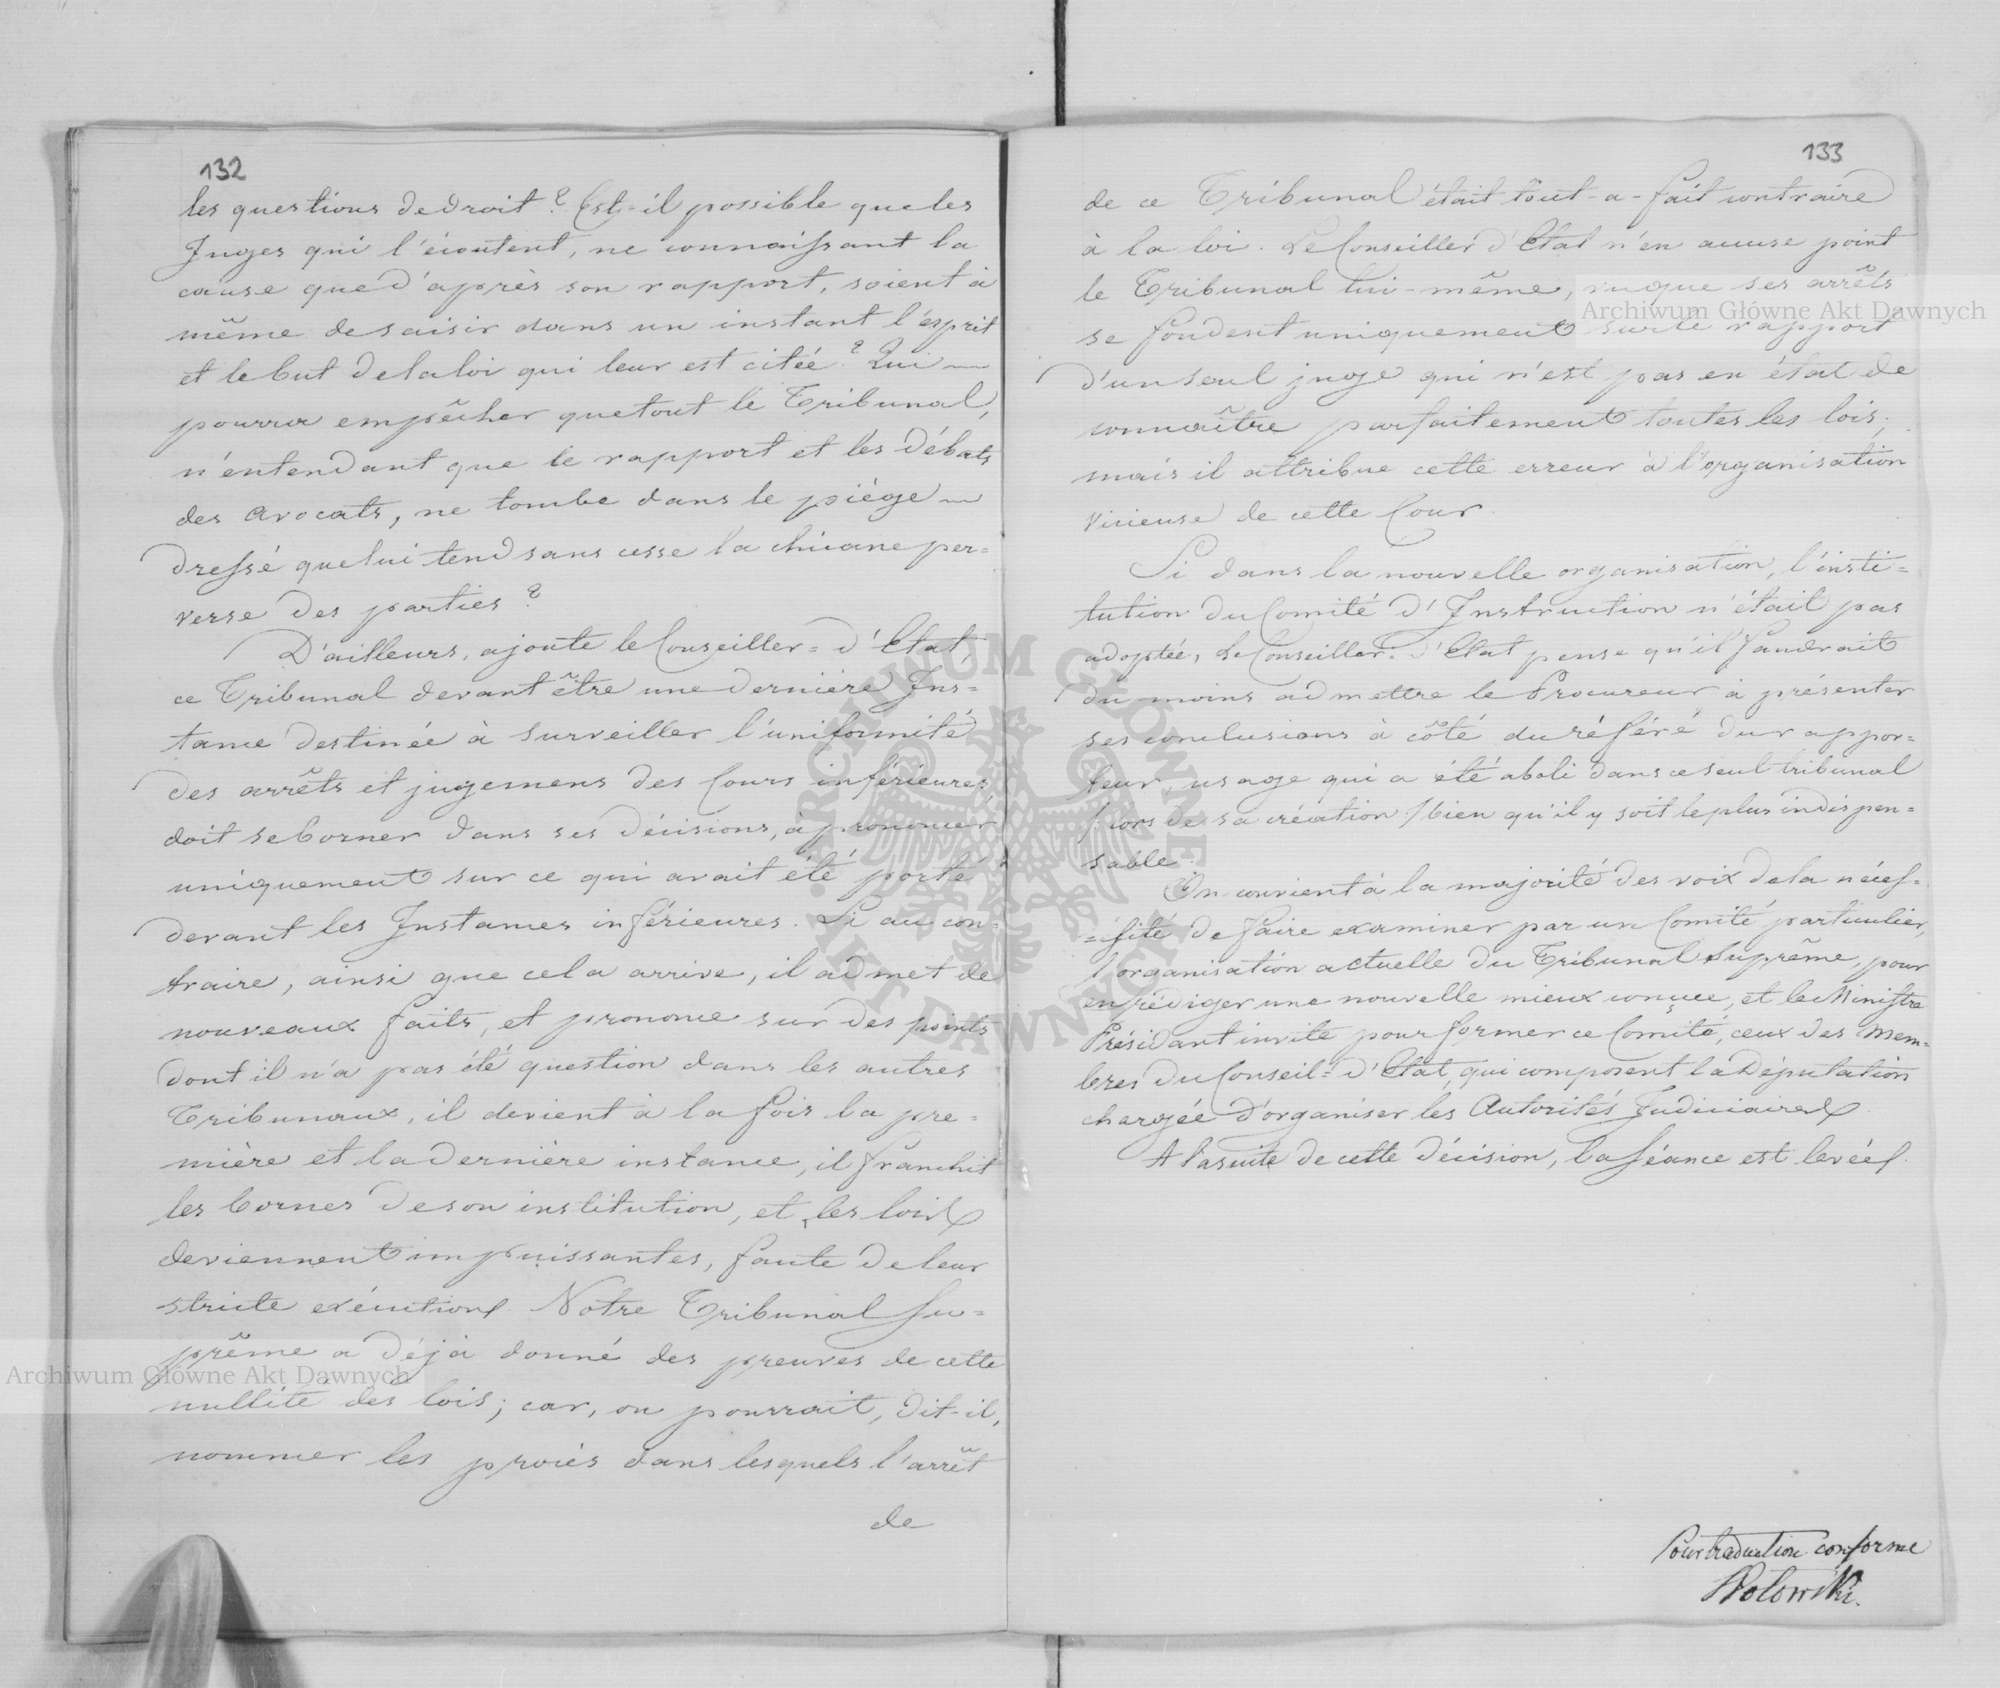 132
les questions de droit? Est-il possible que les
Juges qui l'écoutent, ne connaissant la
cause que d'après son rapport, soient à
même de saisir dans un instant l'esprit
et le but de la loi qui leur est citée? Qui
pourra empêcher que tout le Tribunal,
n'entendant que le rapport et les débats
des avocats, ne tombe dans le piége
dressé que lui tend sans cesse la chicane per=
verse des parties?
D'ailleurs, ajoute le Conseiller=d'Etat,
ce Tribunal devant être une dernière Ins=
tance destinée à surveiller l'uniformité
des arrêts et jugemens des Cours inférieures,
doit se borner dans ses décisions, à prononcer
uniquement sur ce qui avait été porté
devant les Instances inférieures. Si au con=
traire, ainsi que cela arrive, il admet de
nouveaux faits, et prononce sur des points
dont il n'a pas été question dans les autres
Tribunaux, il devient à la fois la pre=
mière et la dernière instance, il franchit
les bornes de son institution, et les lois
deviennent impuissantes, faute de leur
stricte exécution. Notre Tribunal Su=
prême a déjà donné des preuves de cette
nullité des lois; car, on pourrait, dit-il,
nommer les procès dans lesquels l'arrêt
de
133
de ce Tribunal était tout-a-fait contraire
à la loi. Le Conseiller d'Etat n'en accuse point
le Tribunal lui-même, vu que ses arrêts
se fondent uniquement sur le rapport
d'un seul juge qui n'est pas en état de
connaître parfaitement toutes les lois;
mais il attribue cette erreur à l'organisation
vicieuse de cette Cour.
Si dans la nouvelle organisation, l'insti=
tution du Comité d'Instruction n'était pas
adoptée, le Conseiller=d'Etat pense qu'il faudrait
du moins admettre le Procureur à présenter
ses conclusions à côté du référé du rappor=
teur, usage qui a été aboli dans ce seul tribunal
/:lors de sa création:/ bien qu'il y soit le plus indispen=
sable.
On convient à la majorité des voix de la néces=
=sité de faire examiner par un Comité particulier,
l'organisation actuelle du Tribunal Suprême, pour
en rédiger une nouvelle mieux conçue, et le Ministre
Présidant invite pour former ce Comité, ceux des Mem=
bres du Conseil=d'Etat, qui composent la Députation
chargée d'organiser les Autorités Judiciaires.
A la suite de cette décision, la séance est levée.
Pour traduction conforme
Wolowski.
Archiwum Główne Akt Dawnych
Archiwum Główne Akt Dawnych
ARCHIWUM GŁÓWNE AKT DAWNYCH